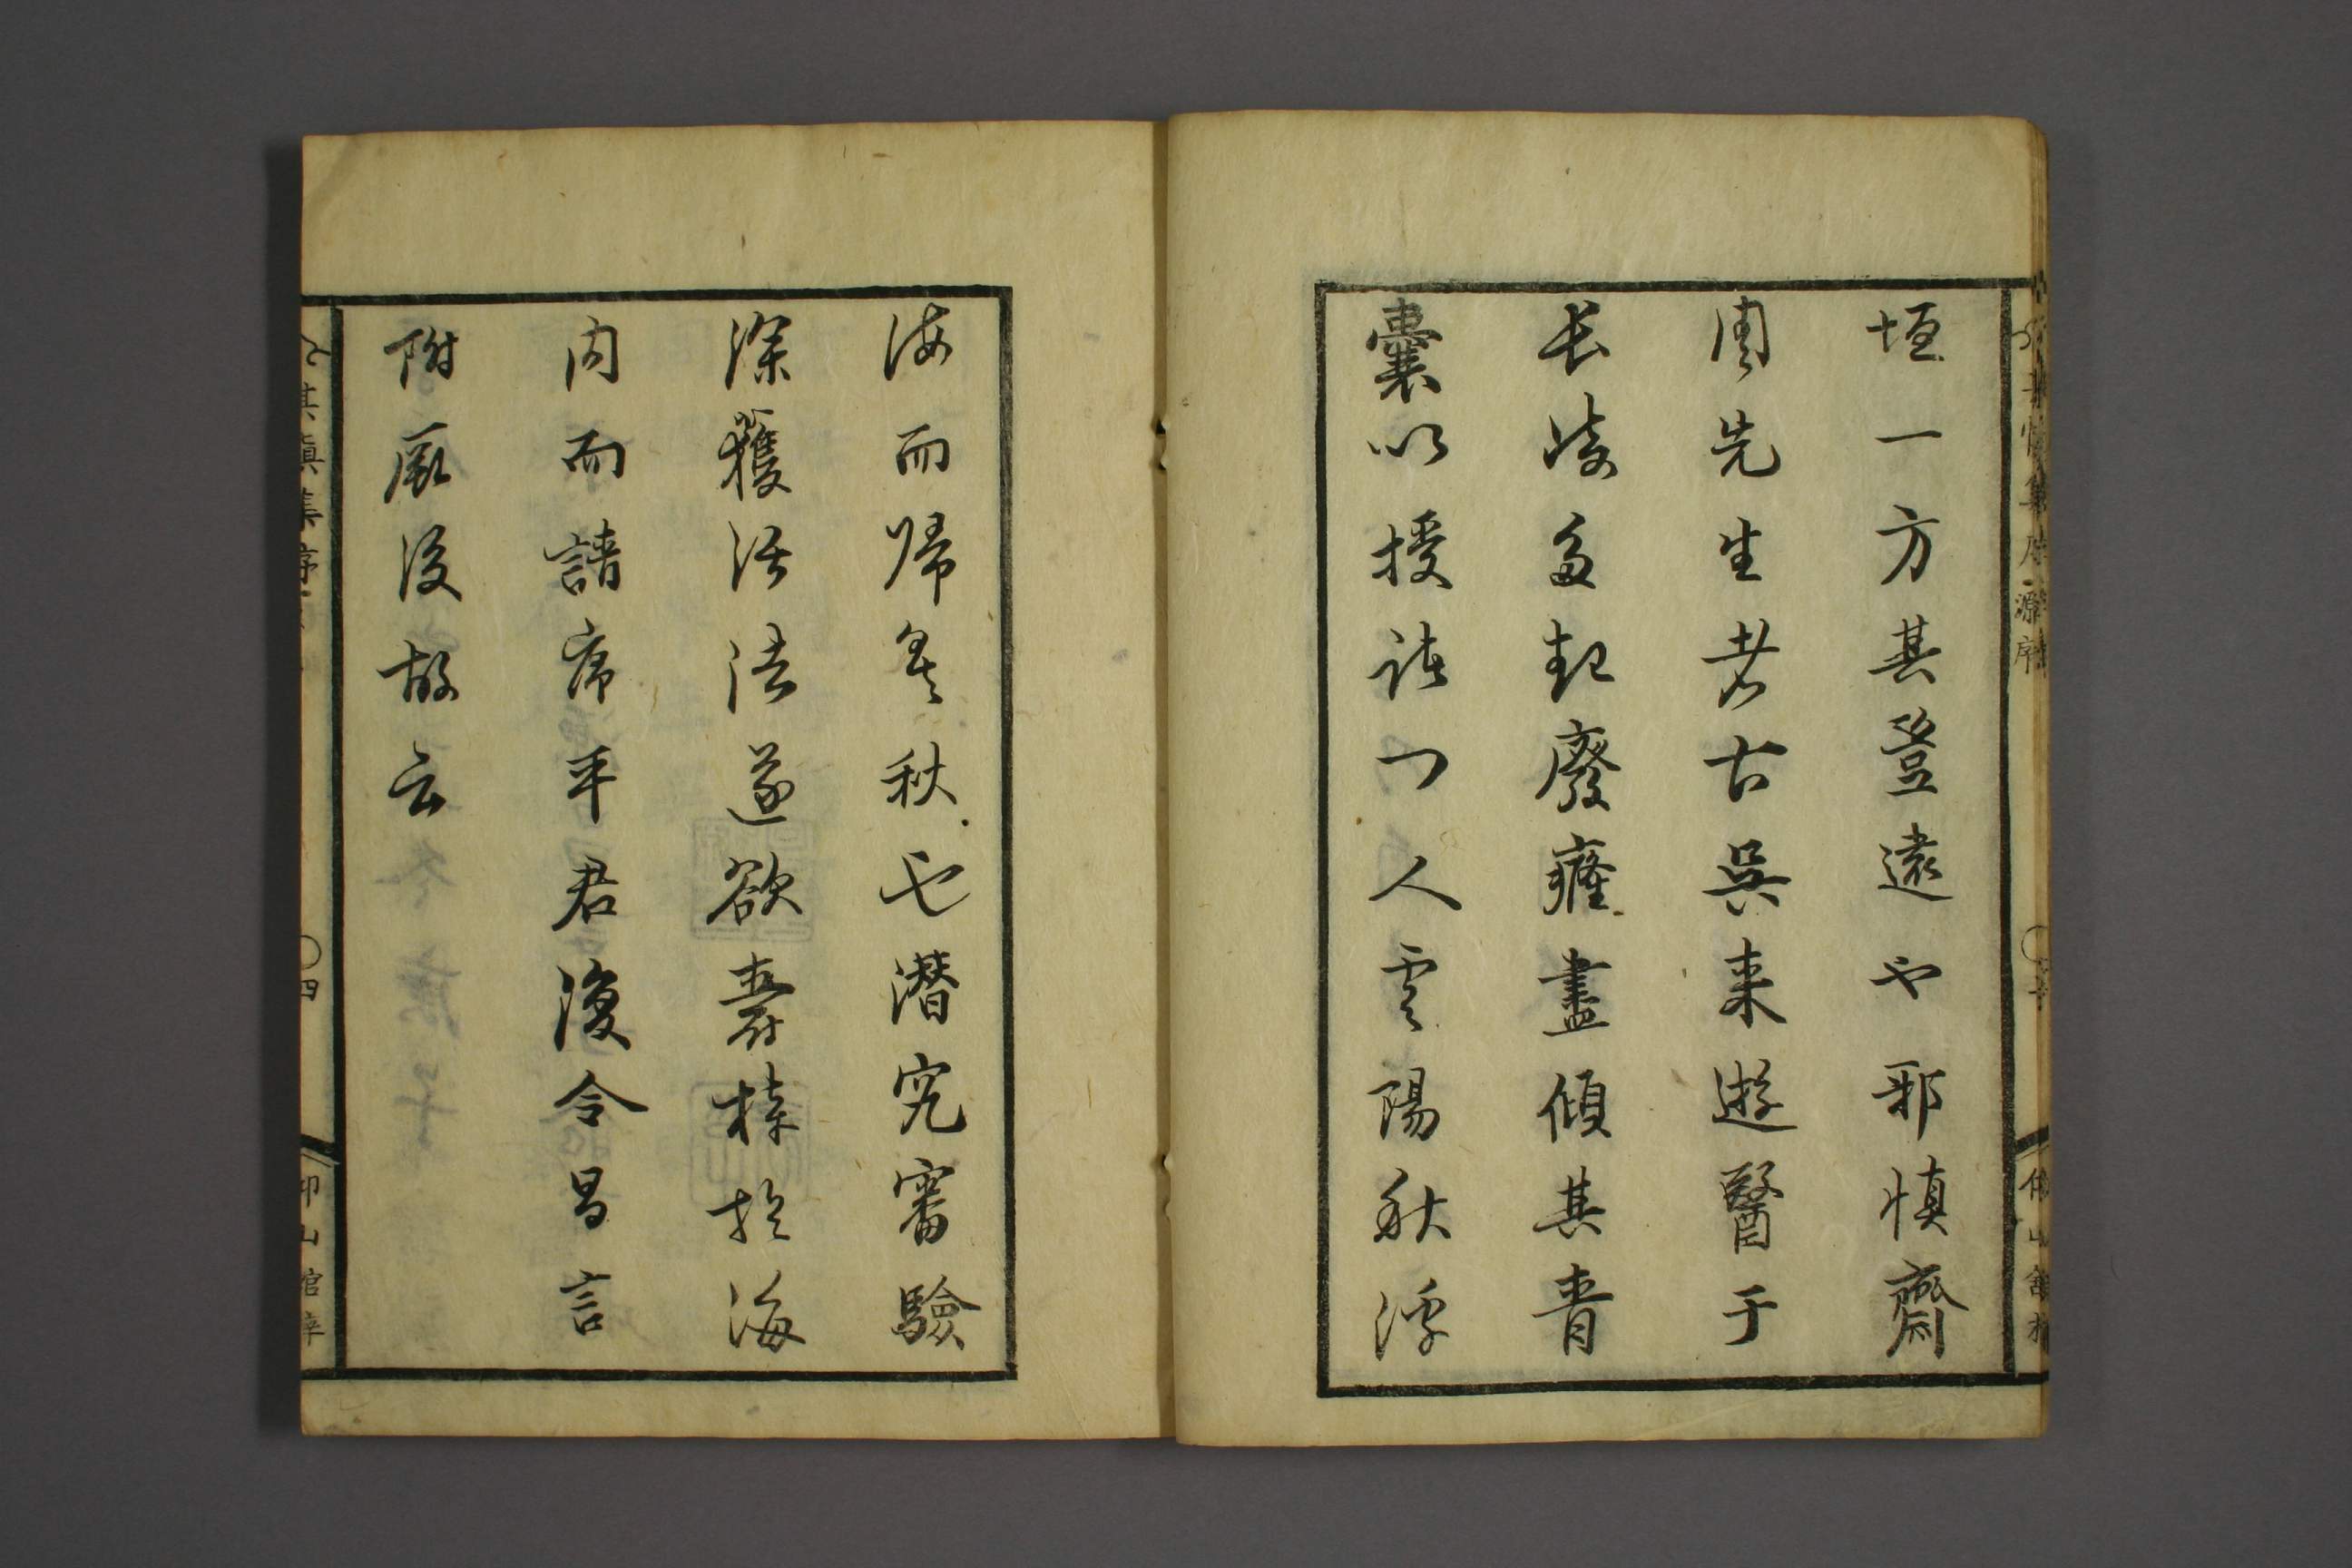 垣一方其登遠也耶慎齋
周先生者古吳来遊醫于
長凌多起癈癃盡傾其青
囊以授諸門人雲陽秋浮
海而歸矣秋也潛究審驗
深獲活法遂欲壽梓於海
内而請序平君復令昌言
附厥後故云
四